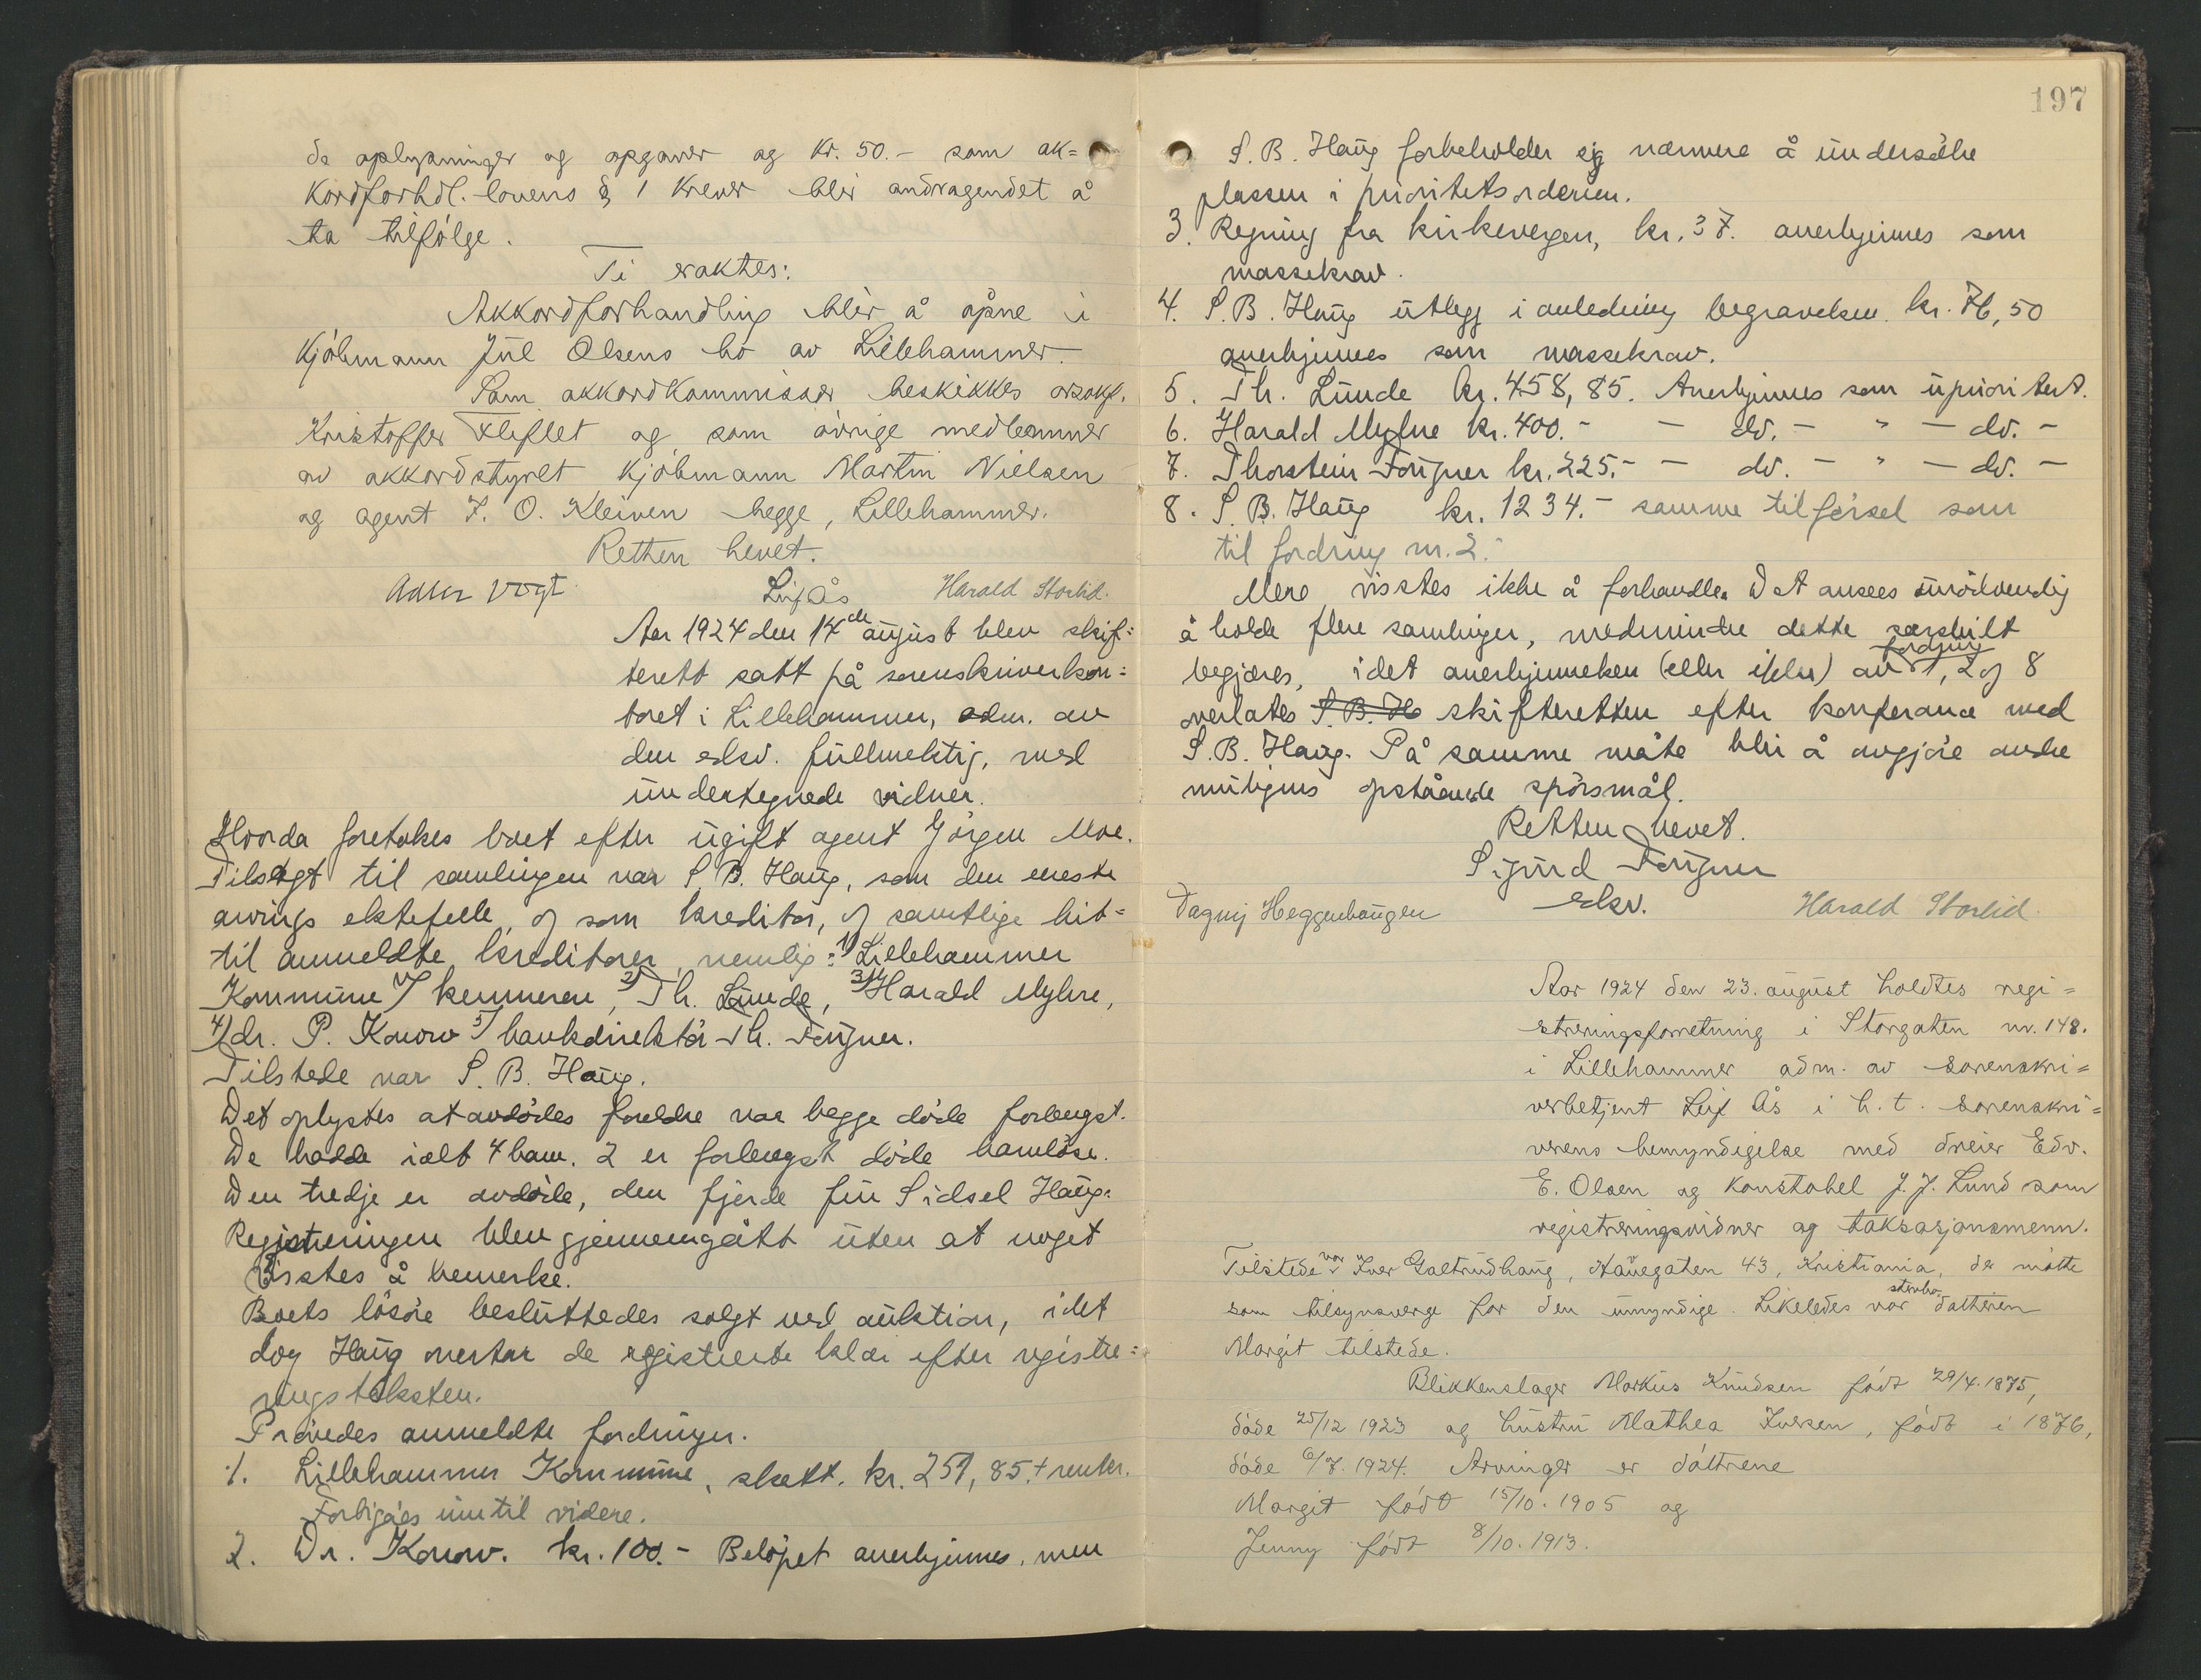 de oplysninger og opgaver og kr. 50.- som ak=
kordforhdl. lovens § 1 krever blir andragendet å
ta tilfölge.
Ti eraktes:
Akkordforhandling blir å åpne i
Kjöbmann Jul Olsens bo av Lillehammer.
Som akkordkommissær beskikkes orsakf.
Kristoffer Kleflet og som övrige medlemmer
av akkordstyret Kjöbmann Martin Nielsen
og agent F. O. Kleiven begge, Lillehammer.
Retten hevet.
Adler Vogt Leif Ås Harald Storlid.
Aar 1924 den 14de august blev skif=
terett satt på sorenskriverkon=
toret i Lillehammer, adm. av
den edsv. fullmektig, med
undertegnede vidner.
Hvorda foretokes boet efter ugift agent Jörgen Moe.
Tilsagt til samlingen var S. B. Haug, som den eneste
arvings ektefelle, og som kreditor, og samtlige hit=
til anmeldte kreditorer, nemlig: 1) Lillehammer
Kommune v/ kemneren, 2) Th. Lunde, 3) Harald Myhre,
4) dr. P. Konow 5) bankdirektör Th. Fougner.
Tilstede var S. B. Haug.
Det oplystes at avdödes foreldre var begge döde forlengst.
De hadde ialt 4 barn. 2 er forlengst döde barnlöse.
Den tredje er avdöde, den fjerde fru Sidsel Haug.
Registreringen blev gjennemgått uten at noget
visstes å bemerke.
Boets lösöre besluttedes solgt ved auktion, idet
dog Haug overtar de registrerte klær efter registre=
ringstaksten.
Prövedes anmeldte fordringer.
1. Lillehammer Kommune, skatt. kr. 251,85.+ renter.
Forbigåes inntil videre.
2. Dr. Konow. kr. 100.- Belöpet anerkjennes, men
197
S. B. Haug forbeholder sig nærmere å undersöke
plassen i prioritetsorderen.
3. Regning fra kirkevergen, kr. 37. anerkjennes som
massekrav.
4. S. B. Haug utlegg i anledning begravelsen. kr. 76,50
anerkjennes som massekrav.
5. Th. Lunde kr. 458,85. Anerkjennes som uprioritert.
6. Harald Myhre kr. 400.- - do. - " - do. -
7. Thorstein Fougner kr. 225.- - do. - " - do. -
8. S. B. Haug kr. 1234.- samme tilförsel som
til fordring nr. 2.
Mere visstes ikke å forhandle. Det ansees unödvendig
å holde flere samlinger, medmindre dette særskilt
begjæres, idet anerkjennelsen (eller ikke) av fordring 1, 2 og 8
overlates S. B. H skifteretten efter konferanse med
S. B. Haug. På samme måte blir å avgjöre andre
muligens opstående spörsmål.
Retten hevet.
Sigurd Fougner
edsv.
Dagny Heggenhaugen Harald Storlid.
Aar 1924 den 23. august holdtes regi=
streringsforretning i Storgaten nr. 148.
i Lillehammer adm. av sorenskri=
verbetjent Leif Ås i h. t. sorenskri=
verens bemyndigelse med dreier Edv.
E. Olsen og konstabel J. J. Lund som
registreringsvidner og taksasjonsmenn.
Tilstede var Iver Galtrudhaug, Hauegaten 43, Kristiania, der mötte
som tilsynsverge for den umyndige. Likeledes var stervbo datteren
Margit tilstede.
Blikkenslager Markus Knudsen födt 29/4. 1875,
döde 25/12 1923 og hustru Mathea Iversen, födt i 1876,
döde 6/7. 1924. Arvinger er döttrene
Margit födt 15/10. 1905 og
Jenny födt 8/10. 1913.